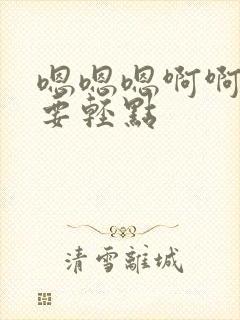 嗯嗯嗯啊啊
要輕點
清雪離城